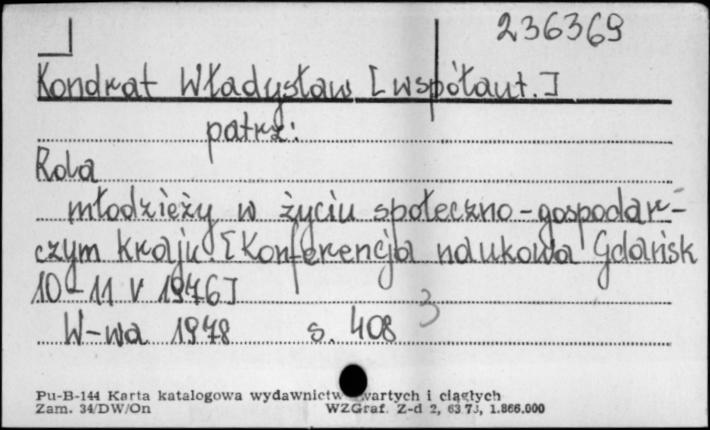 236369
Kondrat Władysław [współaut.]
patrz:
Rola
młodzieży w życiu społeczno-gospodar-
czym kraju. [Konferencja naukowa Gdańsk
10-11 V 1976]
W-wa 1978 s. 408
3
Pu-B-144 Karta katalogowa wydawnictw wartych i ciągłych
Zam. 34/DW/On WZGraf. Z-d 2, 63 73, 1.866.000